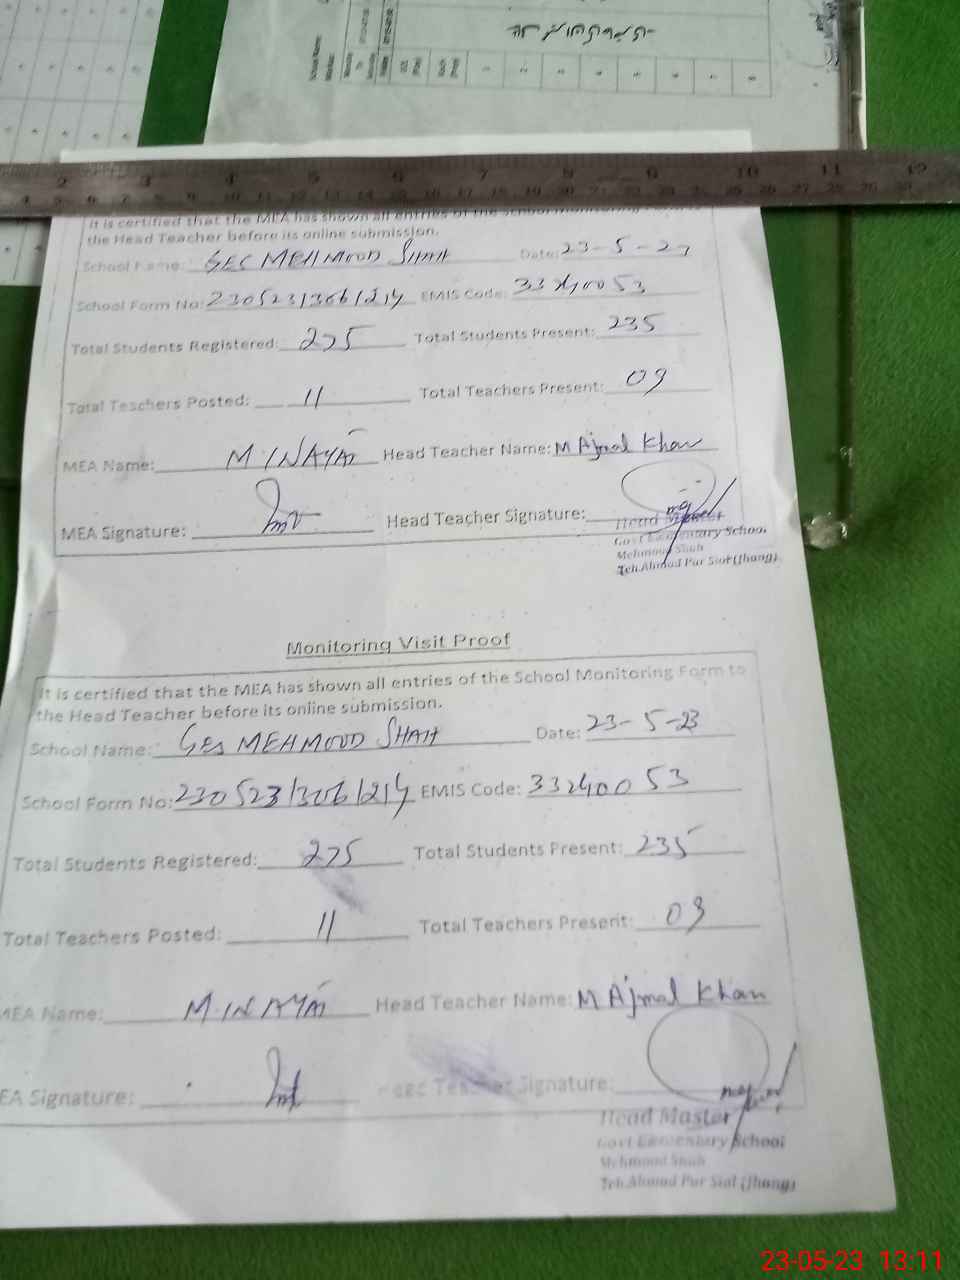 1 2 3 4 5 6 7 8
2 3 4 5 6 7 8 9 10 11 12
It is certified that the MEA has shown all entries of the School Monitoring
the Head Teacher before its online submission.
School Name: GES MEHMOOD SHAH Date: 23-5-23
School Form No: 23052313061214 EMIS Code: 33240053
Total Students Registered: 275 Total Students Present: 235
Total Teachers Posted: 11 Total Teachers Present: 09
MEA Name: M. INAYAT Head Teacher Name: M Ajmal Khan
MEA Signature: Head Teacher Signature:
Head Master
Govt Elementary School
Mehmood Shah
Teh. Ahmad Pur Sial (Jhang)
Monitoring Visit Proof
It is certified that the MEA has shown all entries of the School Monitoring Form to
the Head Teacher before its online submission.
School Name: GES MEHMOOD SHAH Date: 23-5-23
School Form No: 23052313061214 EMIS Code: 33240053
Total Students Registered: 275 Total Students Present: 235
Total Teachers Posted: 11 Total Teachers Present: 09
MEA Name: M. INAYAT Head Teacher Name: M Ajmal Khan
EA Signature: Head Teacher Signature:
Head Master
Govt Elementary School
Mehmood Shah
Teh. Ahmad Pur Sial (Jhang)
23-05-23 13:11